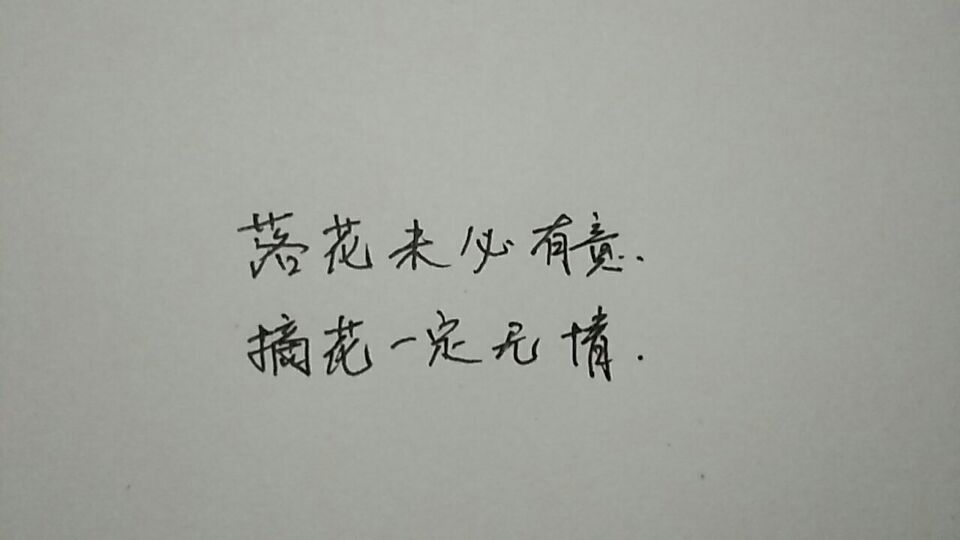 落花未必有意.
摘花一定无情.